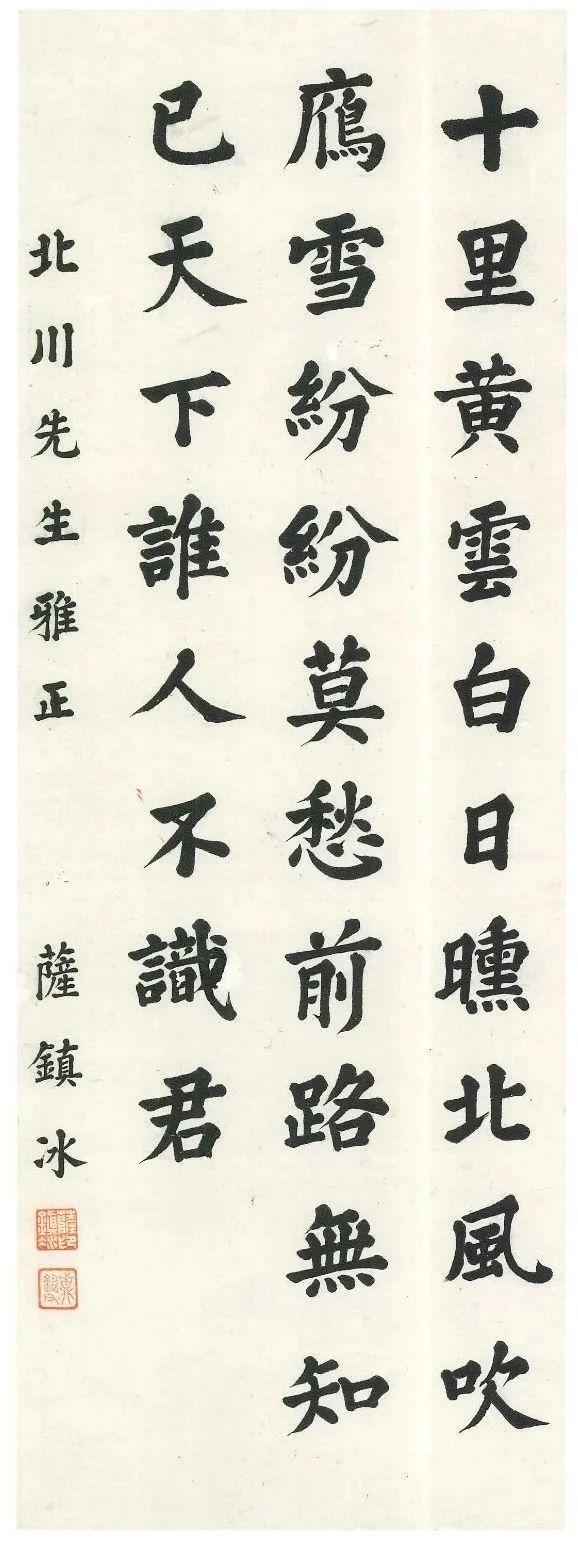 十里黄雲白日曛北風吹
鴈雪紛紛莫愁前路無知
已天下誰人不識君
北川先生雅正 薩鎮冰